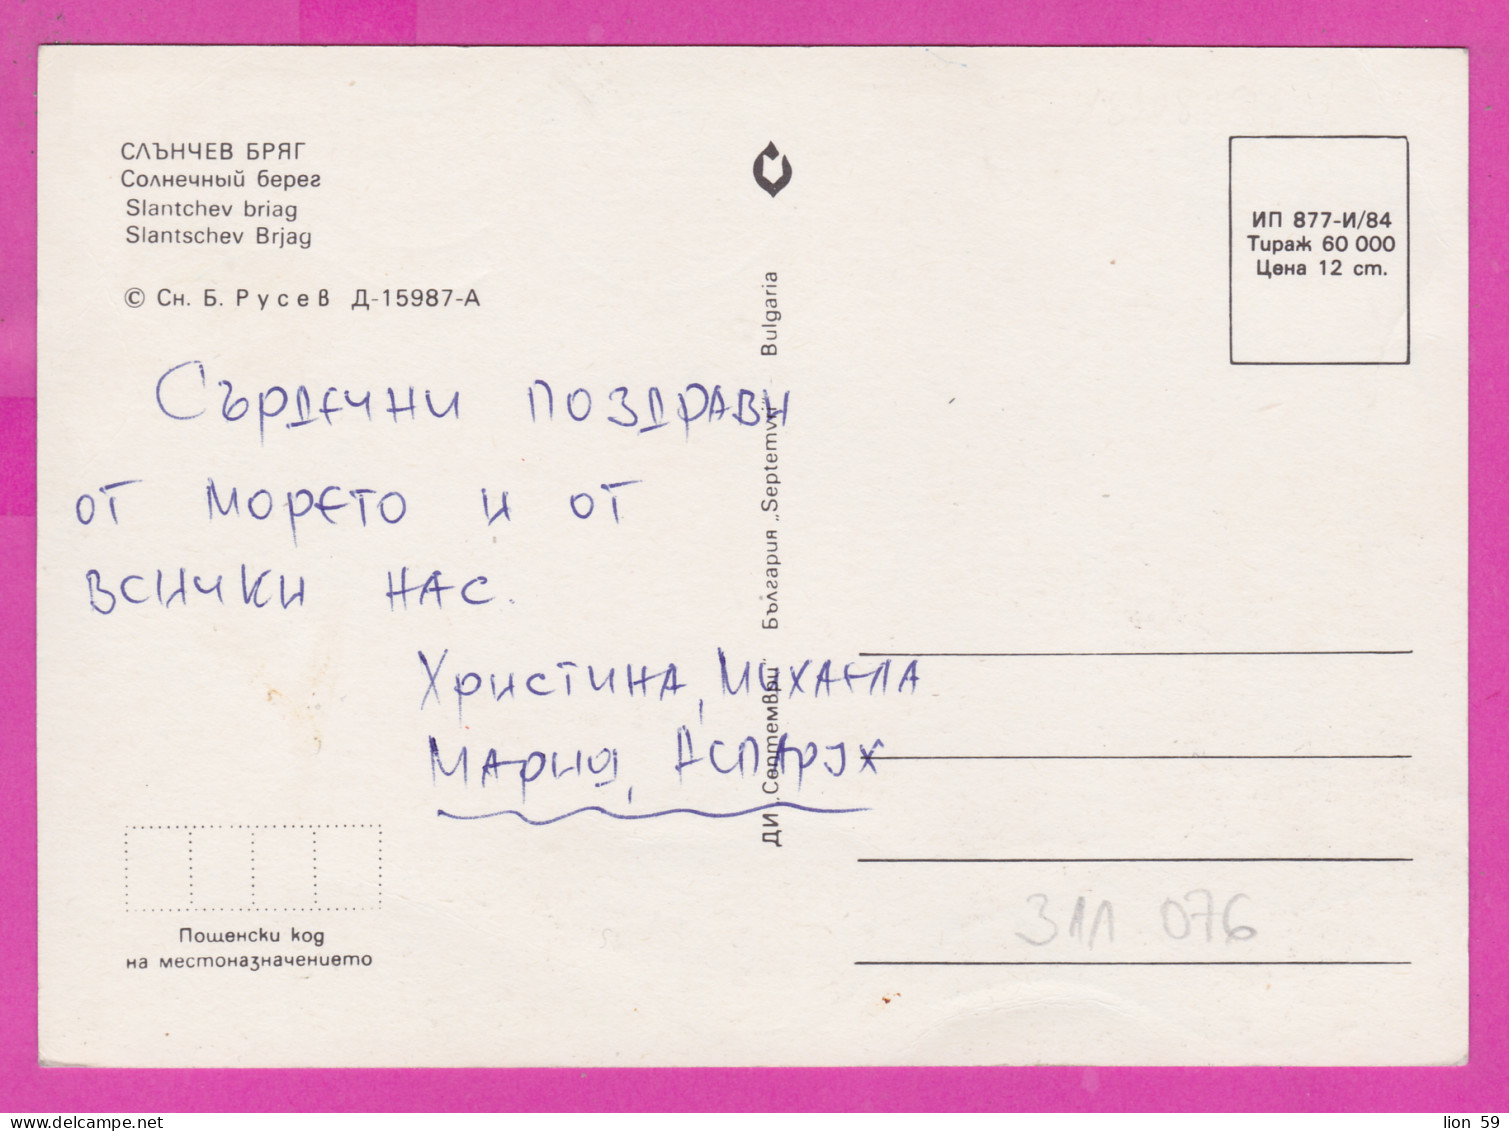 СЛЪНЧЕВ БРЯГ
Солнечный берег
Slantchev briag
Slantschev Brjag
© Сн. Б. Русев Д-15987-А
Сърдечни поздрави
от морето и от
всички нас.
Христина, Михаела
Мария, Аспарух
Пощенски код
на местоназначението
ДИ „Септември” България „Septemvri” - Bulgaria
ИП 877-И/84
Тираж 60 000
Цена 12 ст.
311 076
lion 59